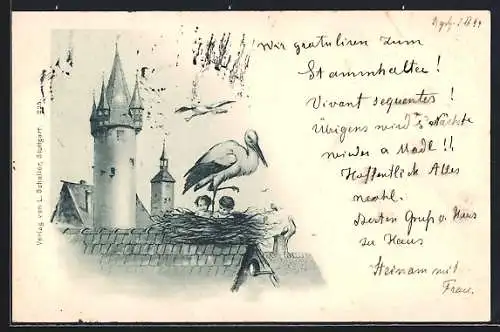 Wir gratuliren zum
Stammhalter!
Vivant sequentes!
Übrigens wird's Nächste
wieder a Madl!!
Hoffentlich Alles
wohl.
Besten Gruß v. Haus
zu Haus
mit
Frau.
Verlag von L. Schaller, Stuttgart. 223.